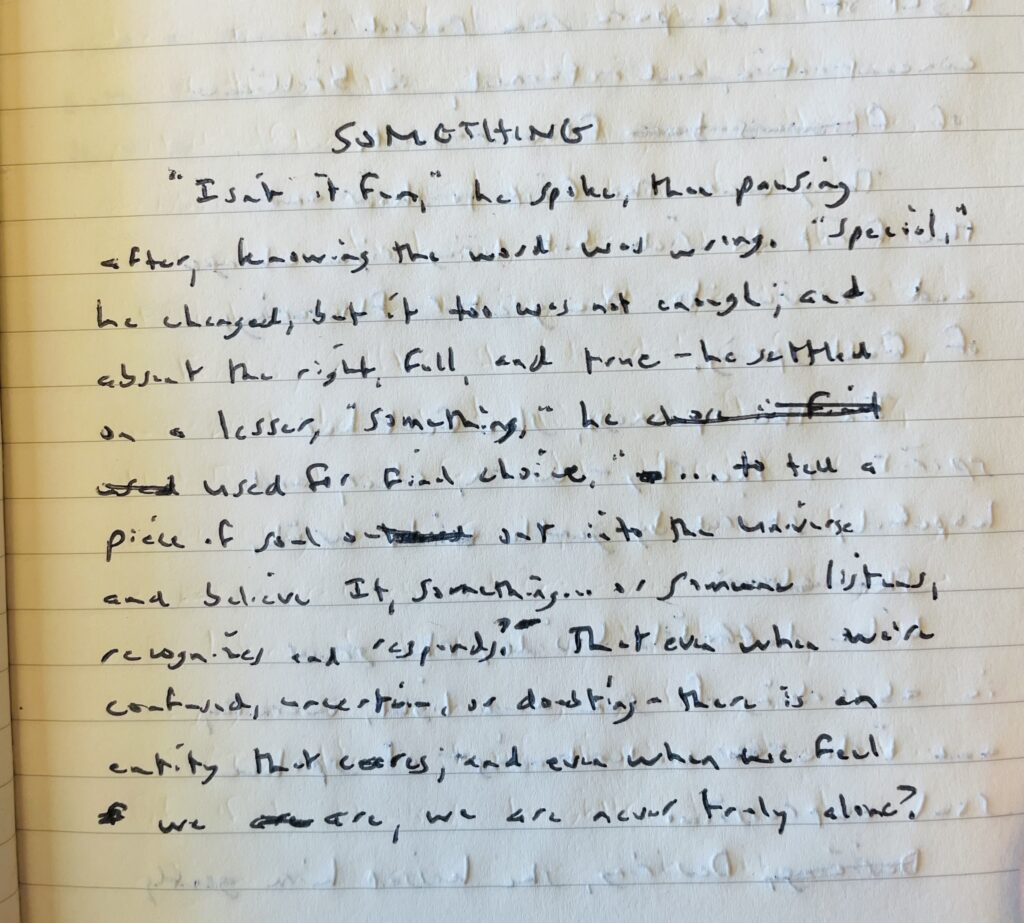 SOMETHING
"Isn't it fun," he spoke, then pausing
after, knowing the word was wrong. "Special,"
he changed, but it too was not enough; and
absent the right, full, and true - he settled
on a lesser, "something," he
used for final choice, "... to tell a
piece of soul out into the universe
and believe It, something... or someone listens,
recognizes and responds?- That even when we're
confused, uncertain, or doubting - there is an
entity that cares; and even when we feel
we are, we are never truly alone?